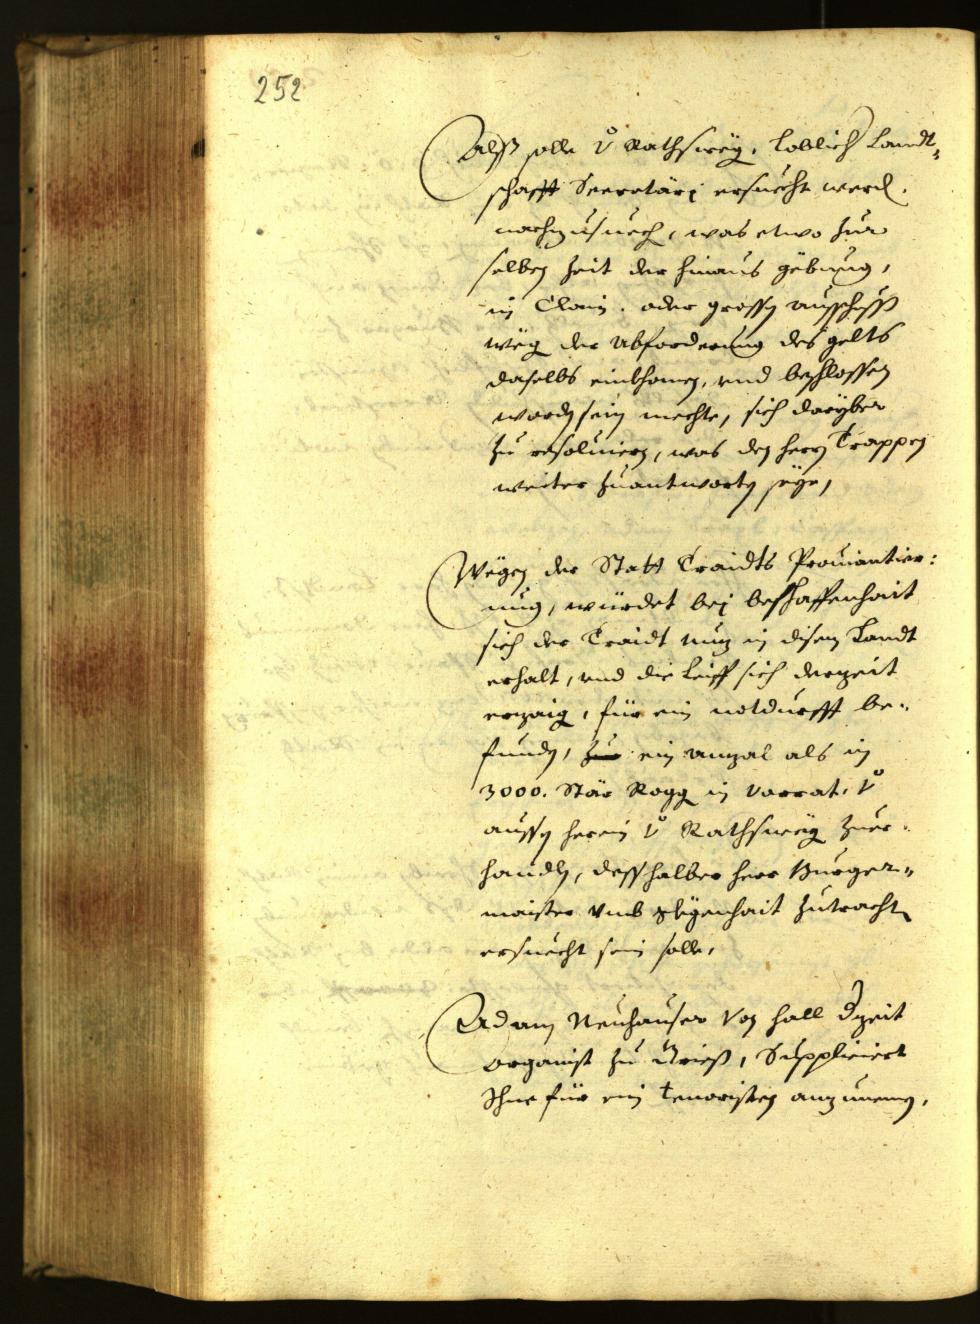 252
Alß solle v Rathsweg. Loblich Landt-
schafft Secretarj ersuecht werd.
nachzusuech, was etwo zur
selben Zeit der hinaus gebung,
in Clain. oder grossen ausschuss
weg der Abforderung des gelts
daselbs einkhomen, vnd beschlossen
worden sein mechte, sich daryber
zu resoluiern, was den herrn Trappen
weiter zuantworten seye,
Wegen der Statt Traidts Prouiantier:
ung, würdet bei beschaffenhait
sich der Traidt nun in disem Landt
erhalt, vnd die leiff sich derzeit
erzaig, für ein notdurfft be-
funden, ein anzal als in
3000. Stär Rogg in vorrat. v
aussen herein v Rathsweg zuer-
handlen, desshalben herr Burger-
maister vmb glegenhait zutrachten
ersuecht sein solle,
Adam Neuhauser von Hall dzeit
Organist zu Grieß, Suppliciert
Ihne für ein Tenoristen anzunemen,